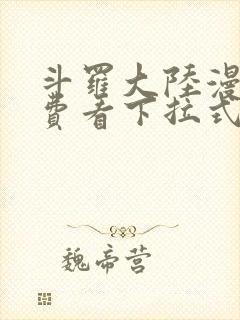 斗羅大陸漫
費看下拉式
魏帝营